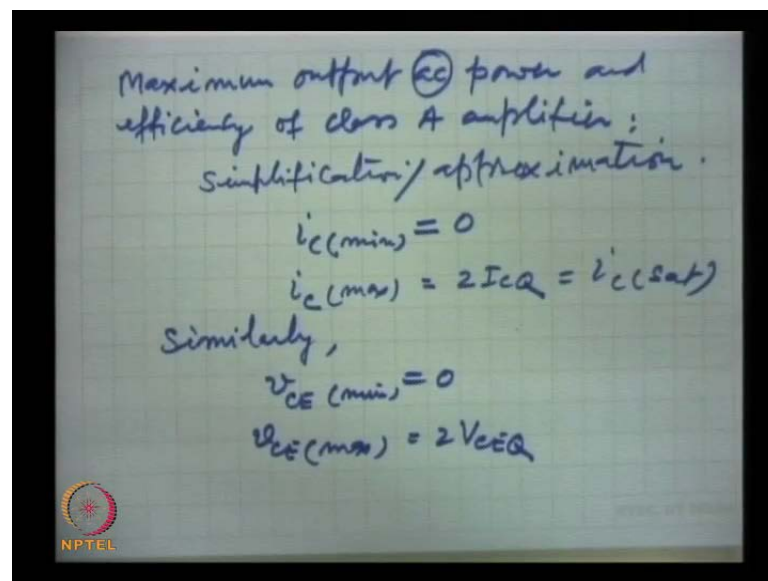 Maximum output ac power and
efficiency of class A amplifier :
Simplification/approximation.
i_C(min) = 0
i_C(max) = 2I_CQ = i_C(sat)
Similarly,
v_CE(min) = 0
v_CE(max) = 2V_CEQ
NPTEL